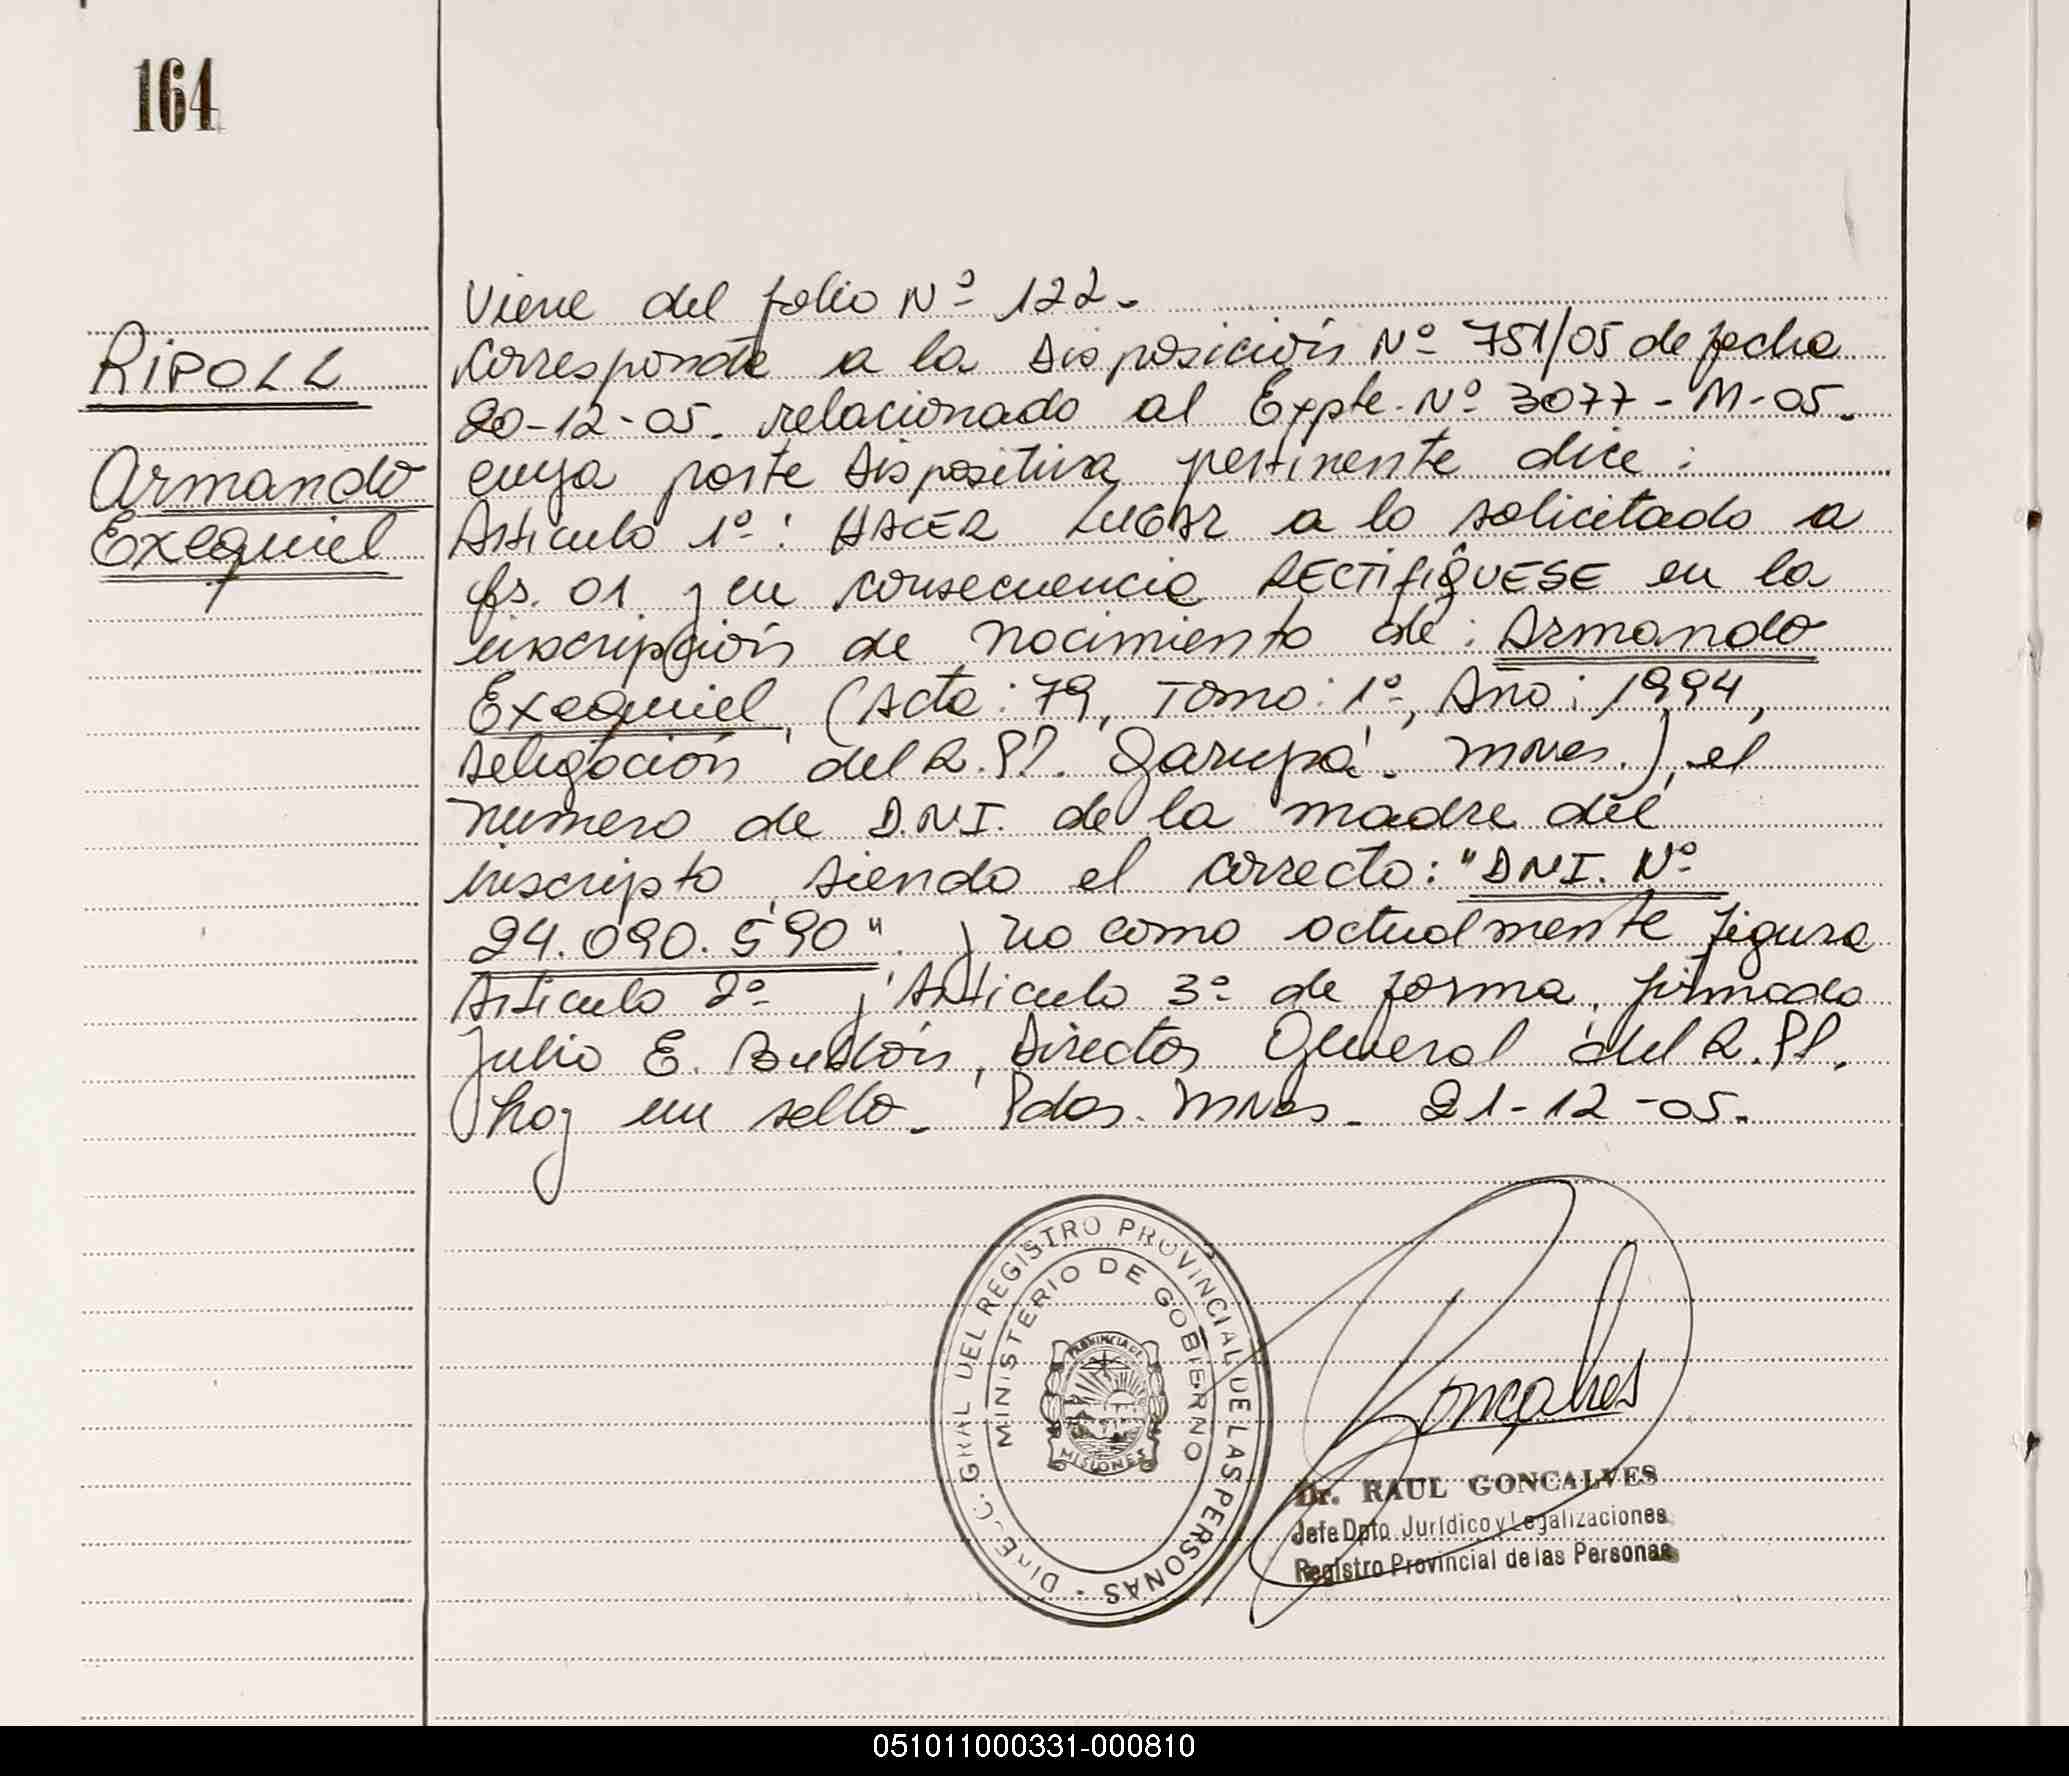 164
RIPOLL
Armando
Exequiel
Viene del folio Nº 122.
Corresponde a la Disposición Nº 751/05 de fecha
20-12-05. relacionado al Expte. Nº 3077-M-05.
cuya parte dispositiva pertinente dice:
Articulo 1º: HACER LUGAR a lo solicitado a
fs. 01 y en consecuencia RECTIFIQUESE en la
inscripción de nacimiento de: Armando
Exequiel, (Acta: 79, Tomo: 1º, Año: 1994,
Delegación del R.PP. Garupá. Mnes.), el
número de D.N.I. de la madre del
inscripto, siendo el correcto: "DNI. Nº
24.090.590". y no como actualmente figura
Articulo 2º y Articulo 3º de forma, firmado
Julio E. , Director General del R.PP.
hay un sello. Pdas. Mnes. 21-12-05.
DIREC. GRAL DEL REGISTRO PROVINCIAL DE LAS PERSONAS
MINISTERIO DE GOBIERNO
PROVINCIA DE
MISIONES
Goncalves
Dr. RAUL GONCALVES
Jefe Dpto. Jurídico y Legalizaciones
Registro Provincial de las Personas
051011000331-000810